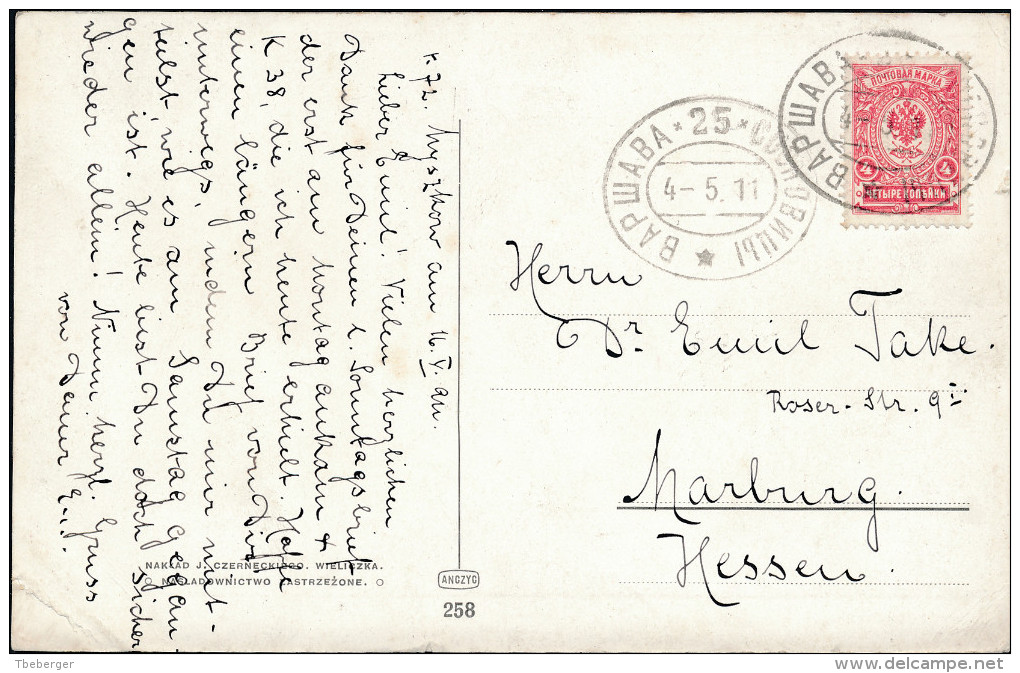 K. 72. Myszkow am 16. V. an.
Lieber Emil! Vielen herzlichen
Dank für Deinen l. Sonntagsbrief
der erst am Montag ankam &
K 38, die ich heute erhielt. Hoffe
einen längern Brief von Dir
unterwegs, indem Du mir mit-
teilst, wie es am Samstag gegan
gen ist. Heute bist Du doch sicher
wieder allein! Nimm herzl. Gruss
von Deiner
NAKŁAD J. CZERNECKIEGO. WIELICZKA.
NAŚLADOWNICTWO ZASTRZEŻONE.
ANCZYC
258
ВАРШАВА * 25 * СОСНОВИЦЫ
4-5.11
ВАРШАВА
ПОЧТОВАЯ МАРКА
4 4
ЧЕТЫРЕ КОПѢЙКИ
Herrn
Dr. Emil Take.
Roser-Str. 9
Marburg.
Hessen.
Tbeberger
www.delcampe.net